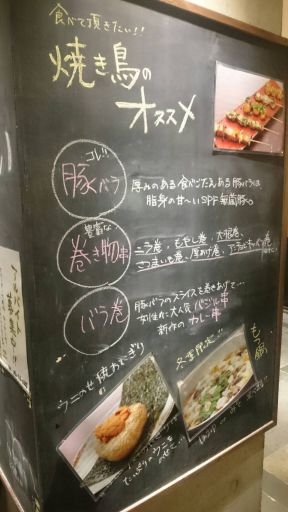 食べて頂きたい!!
焼き鳥の
オススメ
コレ!!
豚バラ
厚みのある食べごたえある豚バラは
脂身の甘〜いSPF無菌豚の
豊富な
巻き物串
ニラ巻、もやし巻、大根巻、
さつまいも巻、厚あげ巻、アスパラ
バラ巻
豚バラのスライスを巻きあげて…
女性が大人気バジル串
新作のカレー串
ウニのせ焼おにぎり
冬季限定…!!
もつ鍋
アルバイト
募集